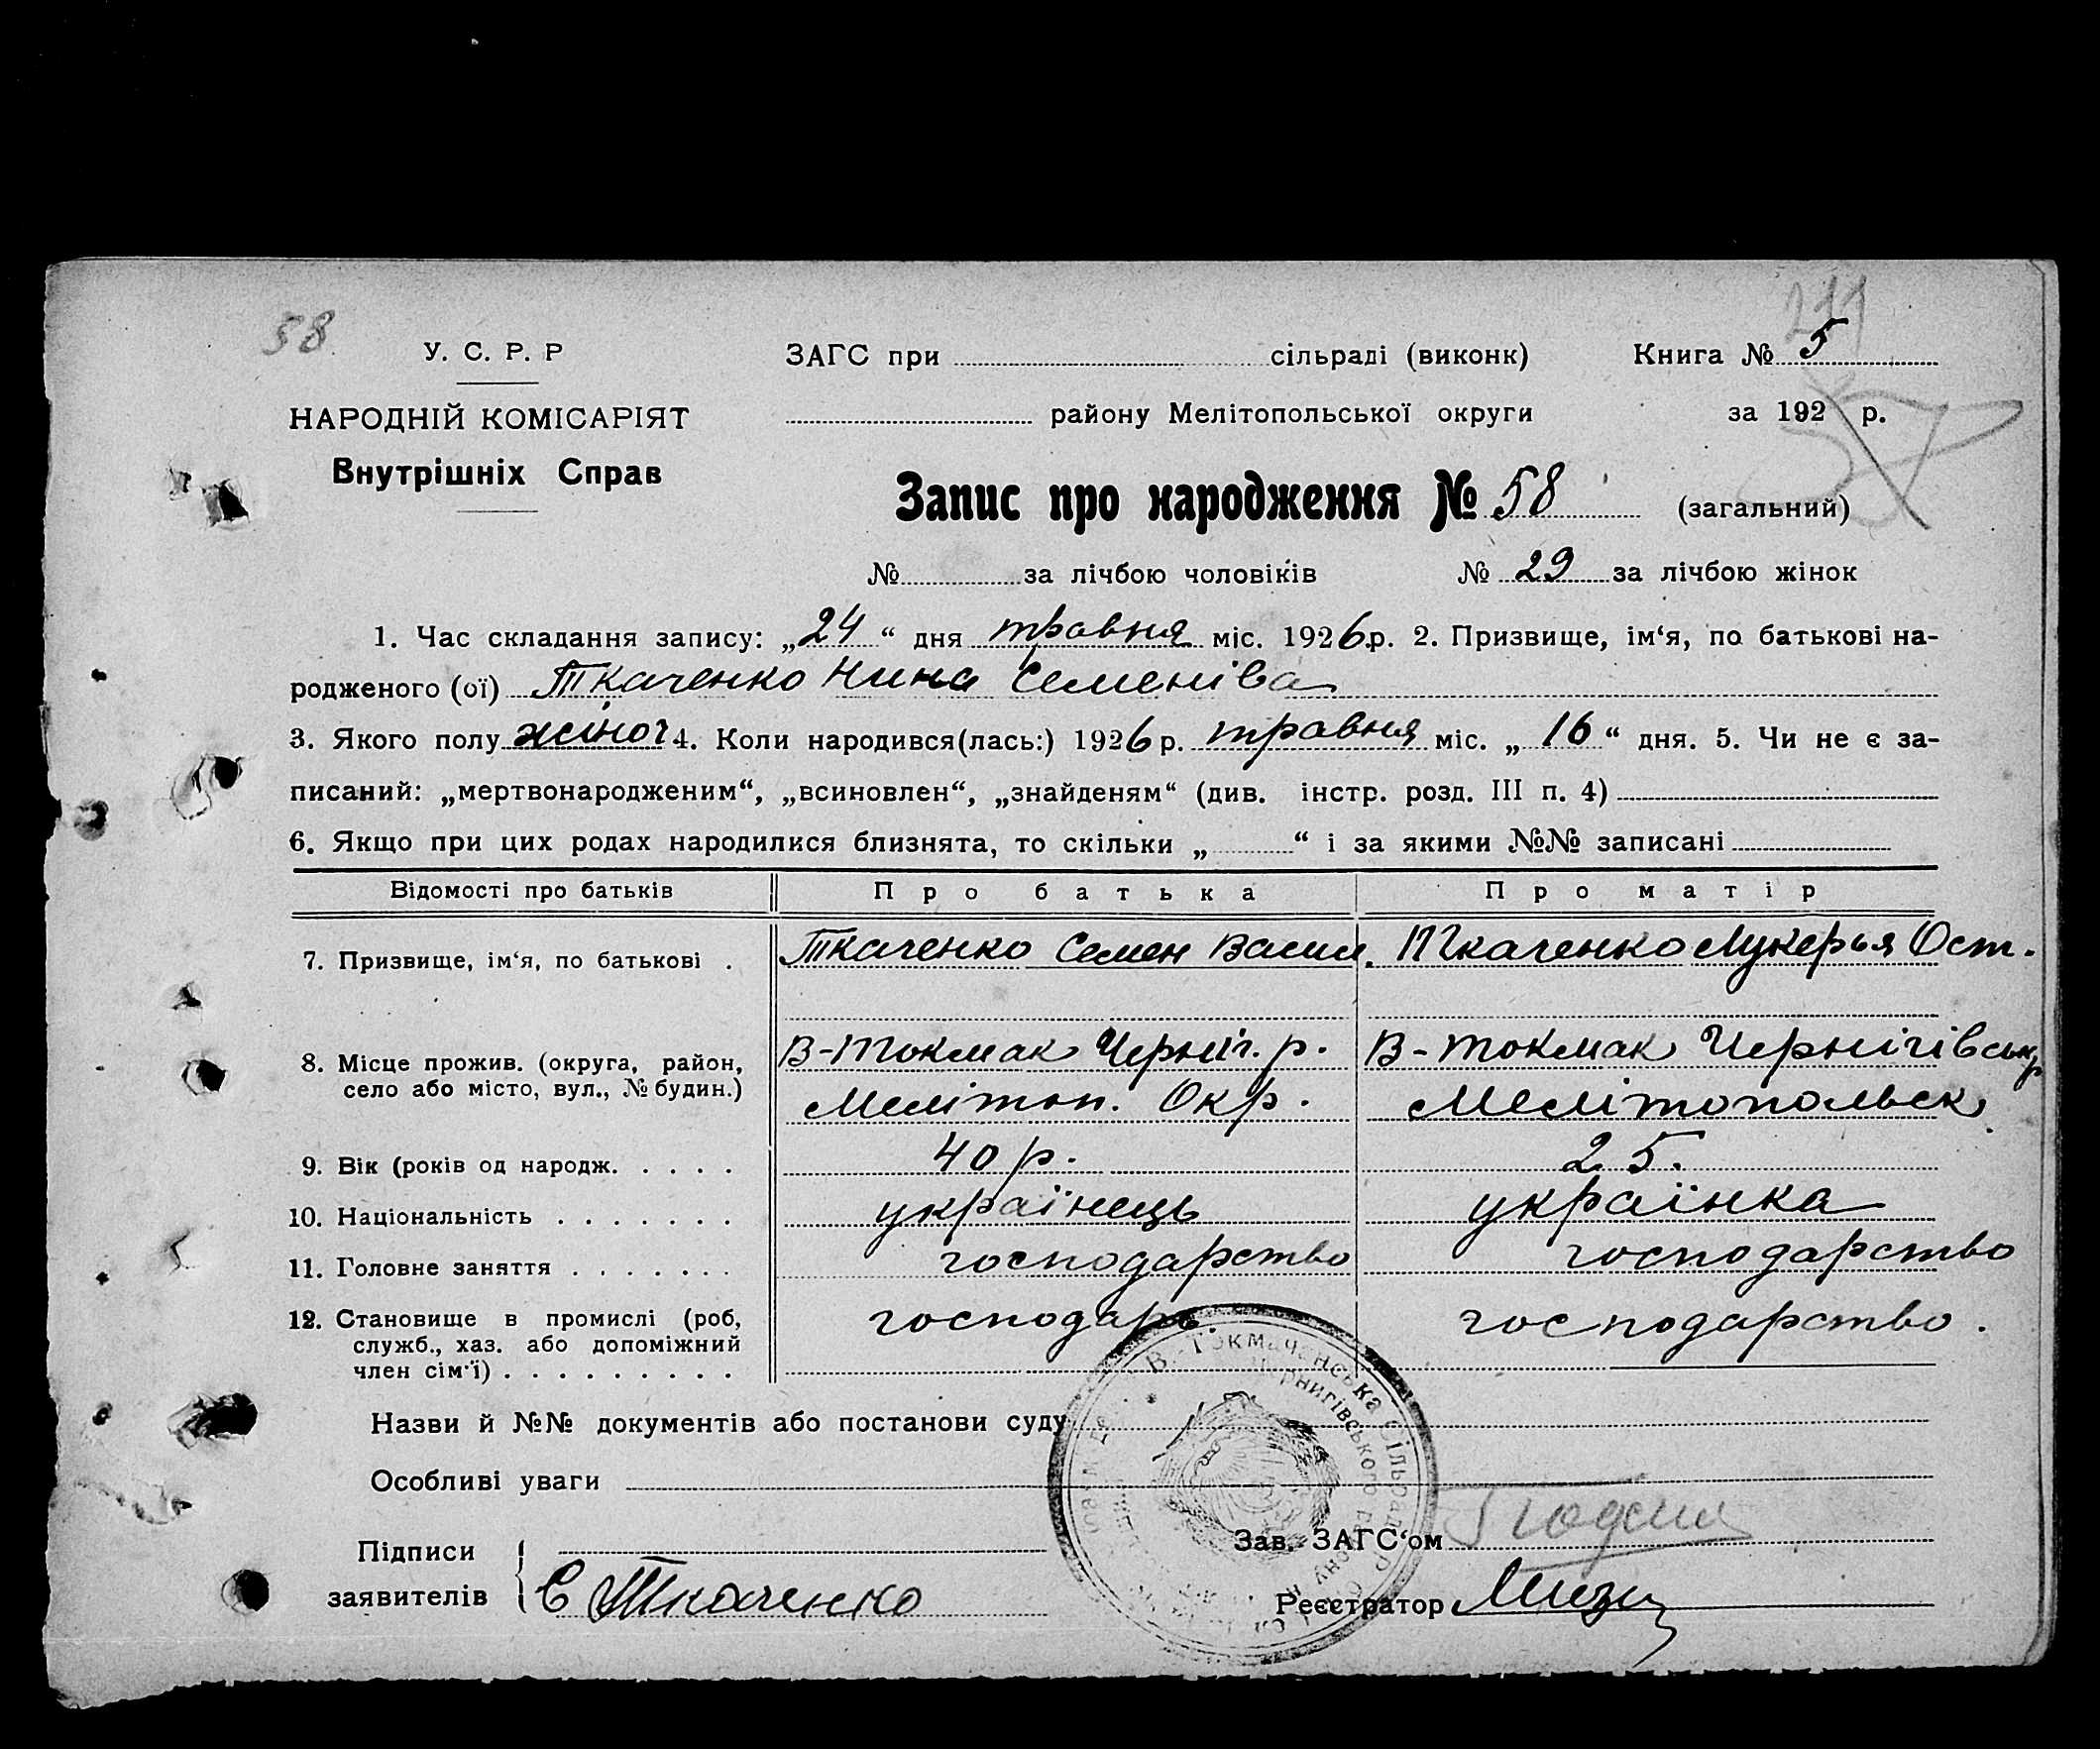 58
У. С. Р. Р
НАРОДНІЙ КОМІСАРІЯТ
Внутрішніх Справ
ЗАГС при сільраді (виконк)
району Мелітопольської округи
Книга № 5
за 192 р.
37
Запис про народження № 58 (загальний)
№ за лічбою чоловіків № 29 за лічбою жінок
1. Час складання запису: „24“ дня травня міс. 1926р. 2. Призвище, ім‘я, по батькові на-
родженого (ої) Ткаченко Нина Семеніва
3. Якого полу жіноч 4. Коли народився(лась:) 1926 р. травня міс. „16“ дня. 5. Чи не є за-
писаний: „мертвонародженим“, „всиновлен“, „знайденям“ (див. інстр. розд. III п. 4)
6. Якщо при цих родах народилися близнята, то скільки „ “ і за якими №№ записані
Відомості про батьків Про батька Про матір
7. Призвище, ім‘я, по батькові . Ткаченко Семен Васил. Ткаченко Лукерья Ост.
8. Місце прожив. (округа, район, В-Токмак Черніг. р. В-Токмак Чернігівськ
село або місто, вул., № будин.) Меліт­оп. Окр. Мелітопольськ
9. Вік (років од народж. . . . . 40 р. 25.
10. Національність . . . . . . . українець українка
11. Головне заняття . . . . . . . господарство господарство
12. Становище в промислі (роб, господарь. господарство.
служб., хаз. або допоміжний
член сім‘ї) . . . . . . . . .
Назви й №№ документів або постанови суду
Особливі уваги
В.-Токмачанська сільрада
Чернигівського району
Підписи
заявителів
С Ткаченко
Зав. ЗАГС‘ом
Реєстратор